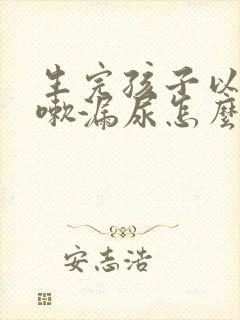 生完孩子以
嗽-漏尿怎麼
安志浩